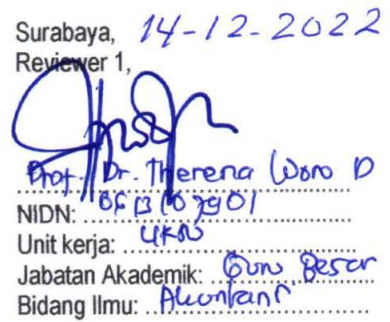 Surabaya, 14-12-2022
Reviewer 1,
Prof. Dr. Therena Woro D
NIDN:
Unit kerja:
Jabatan Akademik: Guru Besar
Bidang Ilmu: Akuntansi